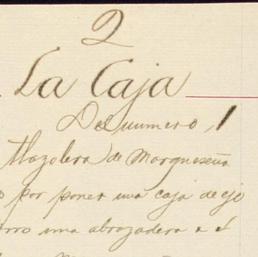 2
La Caja
Del numero, 1
Mazolera de Marqueseña
o por poner una caja de eje
orro una abrazadera a el